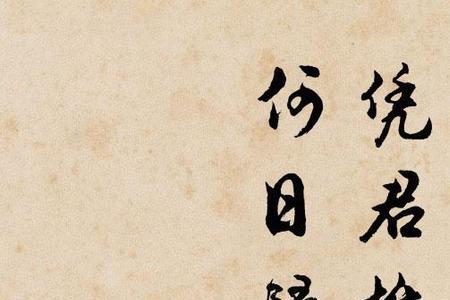 凭君
何日